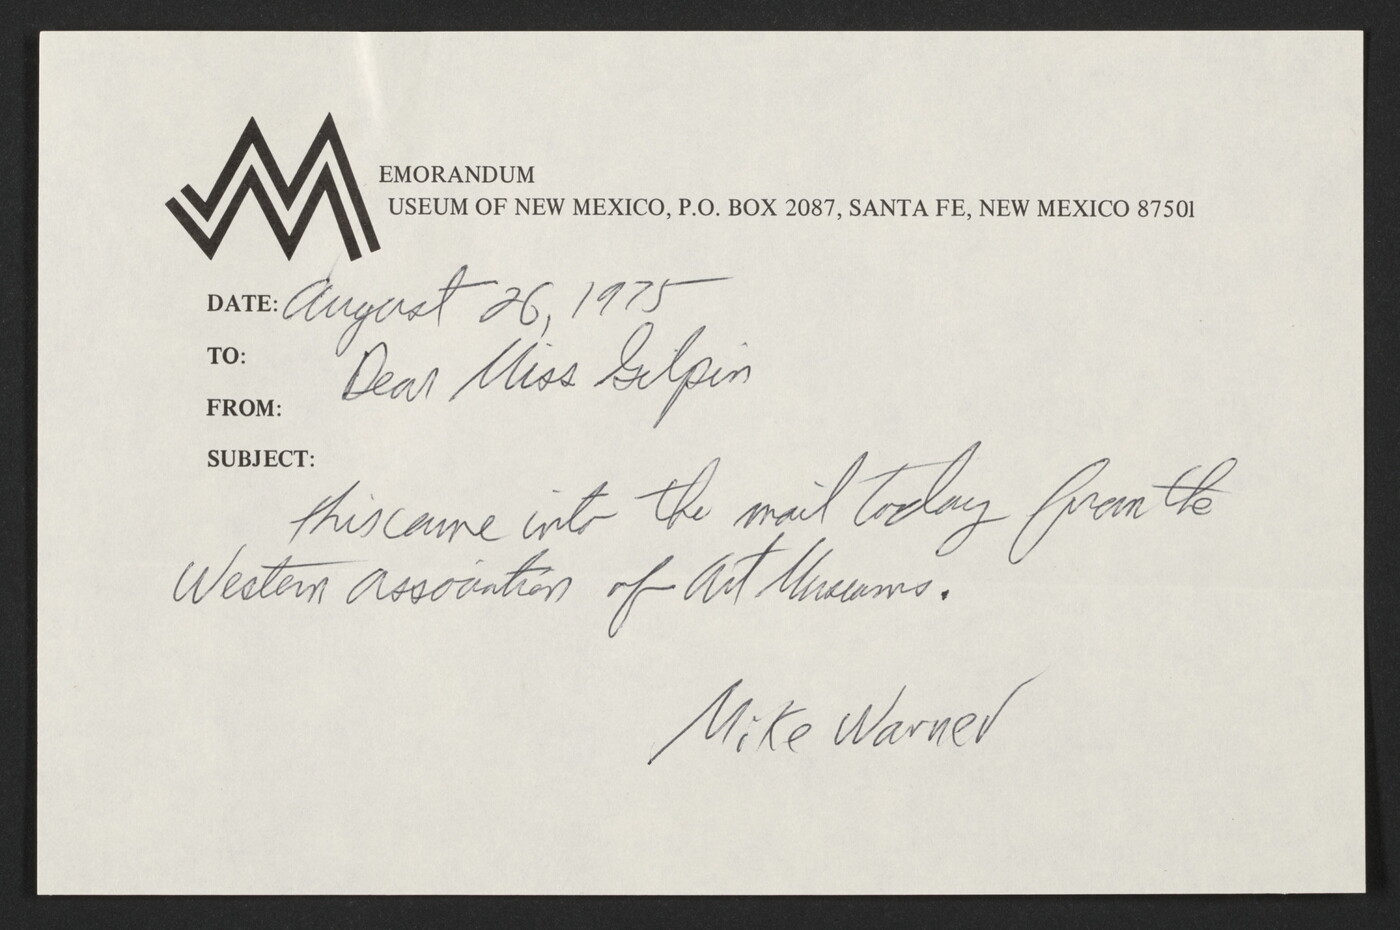 MEMORANDUM
MUSEUM OF NEW MEXICO, P.O. BOX 2087, SANTA FE, NEW MEXICO 87501
DATE: August 26, 1975
TO:
Dear Miss Gilpin
FROM:
SUBJECT:
this came into the mail today from the
Western Association of Art Museums.
Mike Warner